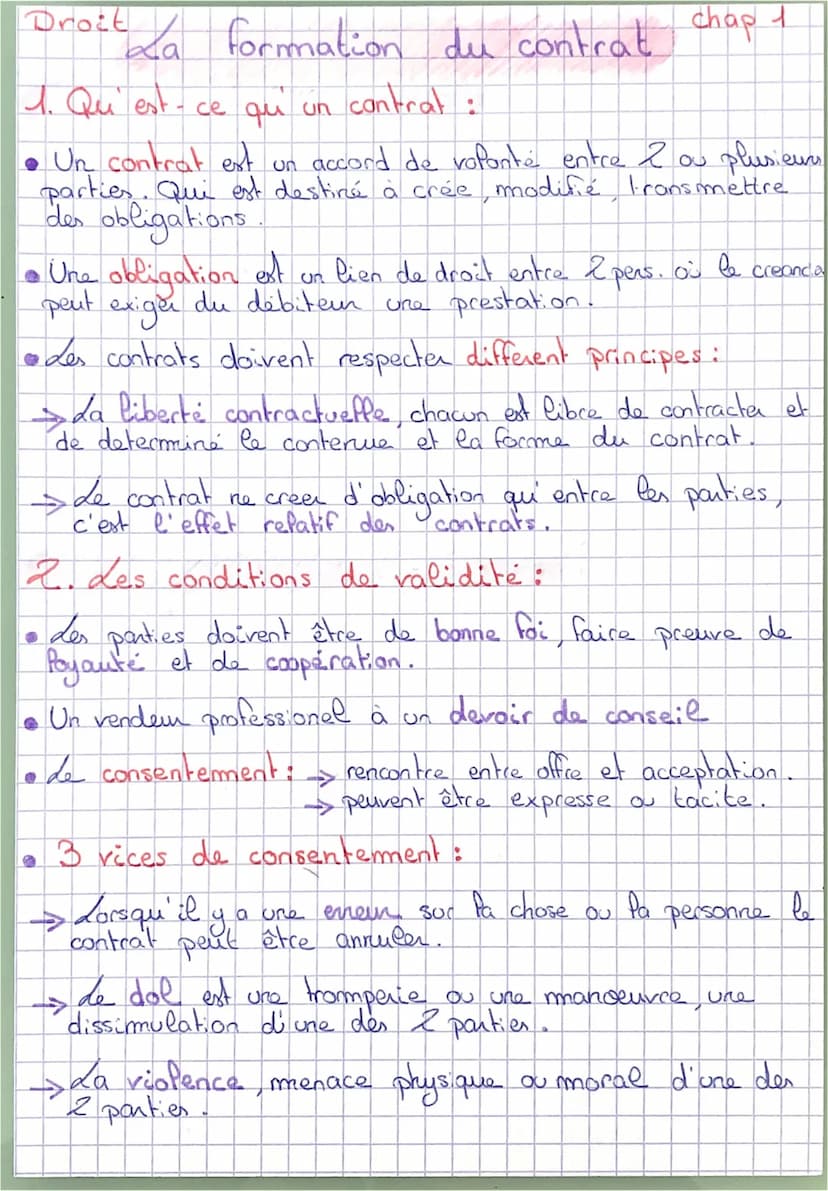 Droit
chap 1
La formation du contrat
1. Qu'est-ce qu'un contrat :
• Un contrat est un accord de volonté entre 2 ou plusieurs
parties. Qui est destiné à crée, modifié, transmettre
des obligations.
• Une obligation est un lien de droit entre 2 pers. où le creancie
peut exiger du débiteur une prestation.
• Les contrats doivent respecter different principes :
→ La liberté contractuelle, chacun est libre de contracter et
de determiné le contenue et la forme du contrat.
→ Le contrat ne creer d'obligation qu'entre les parties,
c'est l'effet relatif des contrats.
2. Les conditions de validité :
• Les parties doivent être de bonne foi, faire preuve de
loyauté et de coopération.
• Un vendeur professionel à un devoir de conseil
• Le consentement : → rencontre entre offre et acceptation.
→ peuvent être expresse ou tacite.
• 3 vices de consentement :
→ Lorsqu'il y a une erreur sur la chose ou la personne le
contrat peut être annuler.
→ Le dol est une tromperie ou une manoeuvre, une
dissimulation d'une des 2 parties.
→ La violence, menace physique ou moral d'une des
2 parties.